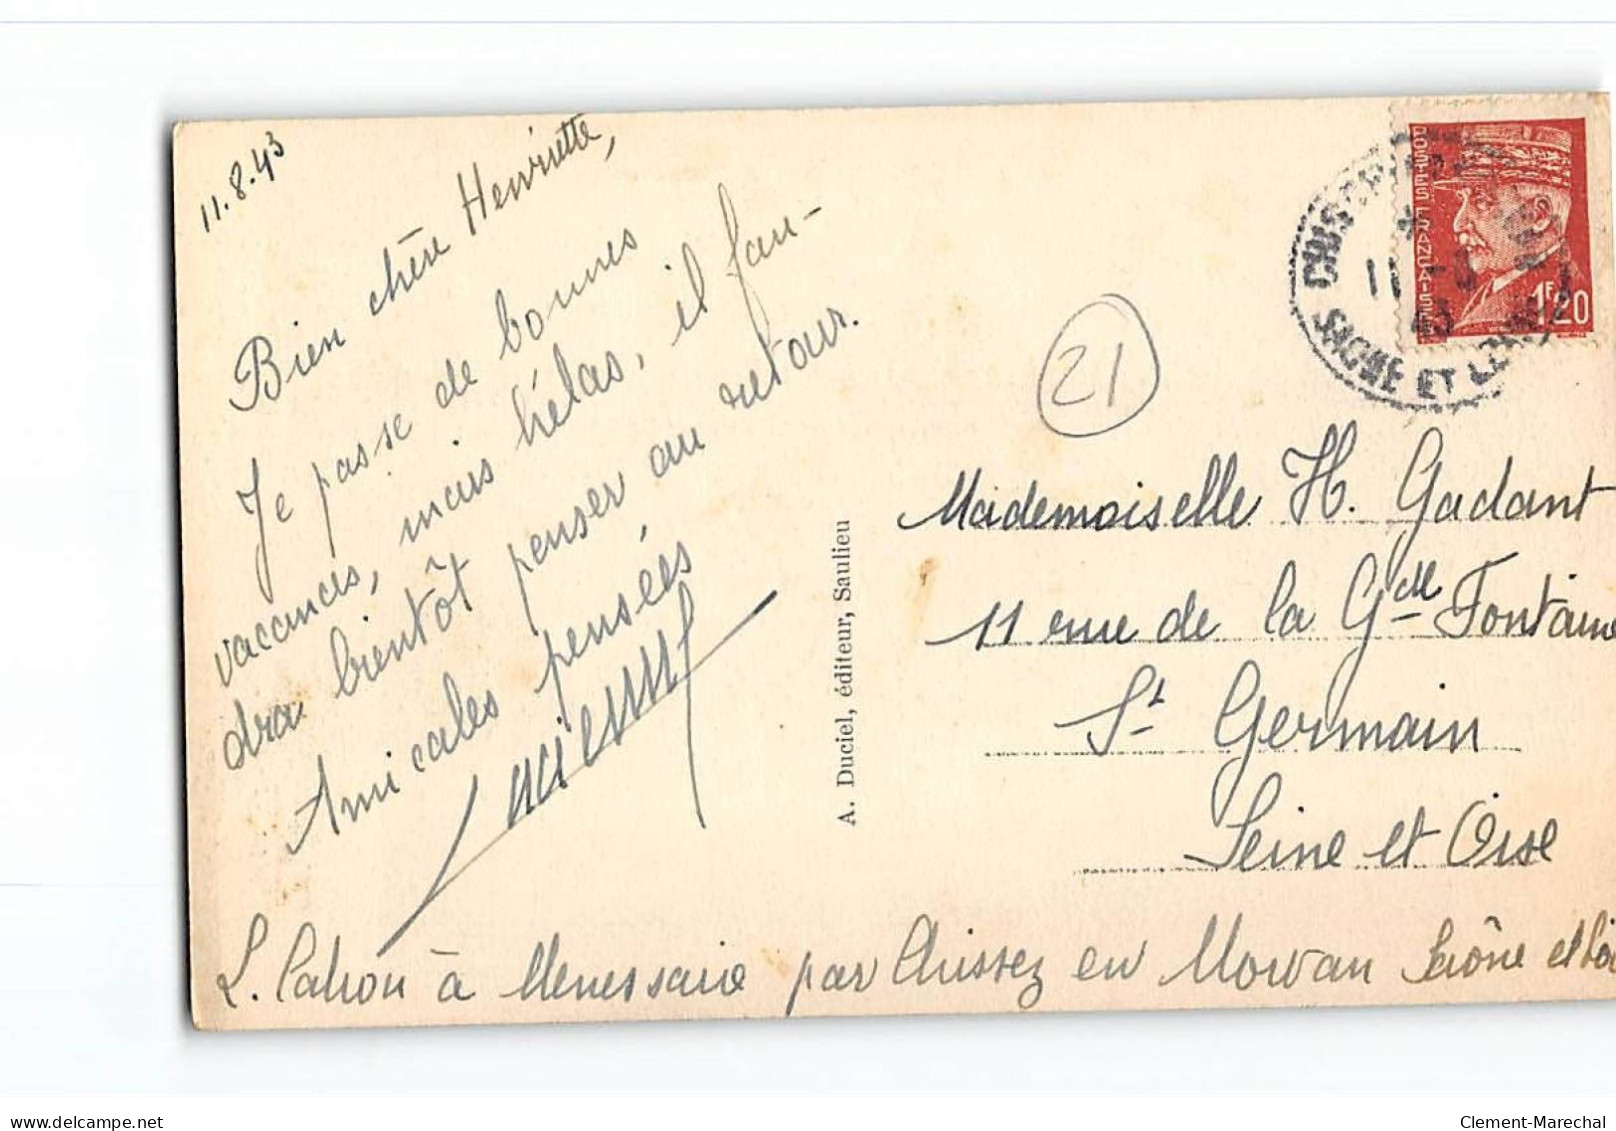 11.8.43
Bien chère Henriette,
Je passe de bonnes
vacances, mais hélas, il fau-
dra bientôt penser au retour.
Amicales pensées
Lucienne
L. Cahon à Menessaire par Chissez en Morvan Saône et Loi
A. Duciel, éditeur, Saulieu
21
POSTES FRANCAISES
1F20
11 -8
43
SAONE ET LOIRE
Mademoiselle H. Gadant
11 rue de la Gde Fontaine
St Germain
Seine et Oise
delcampe.net
Clement-Marechal